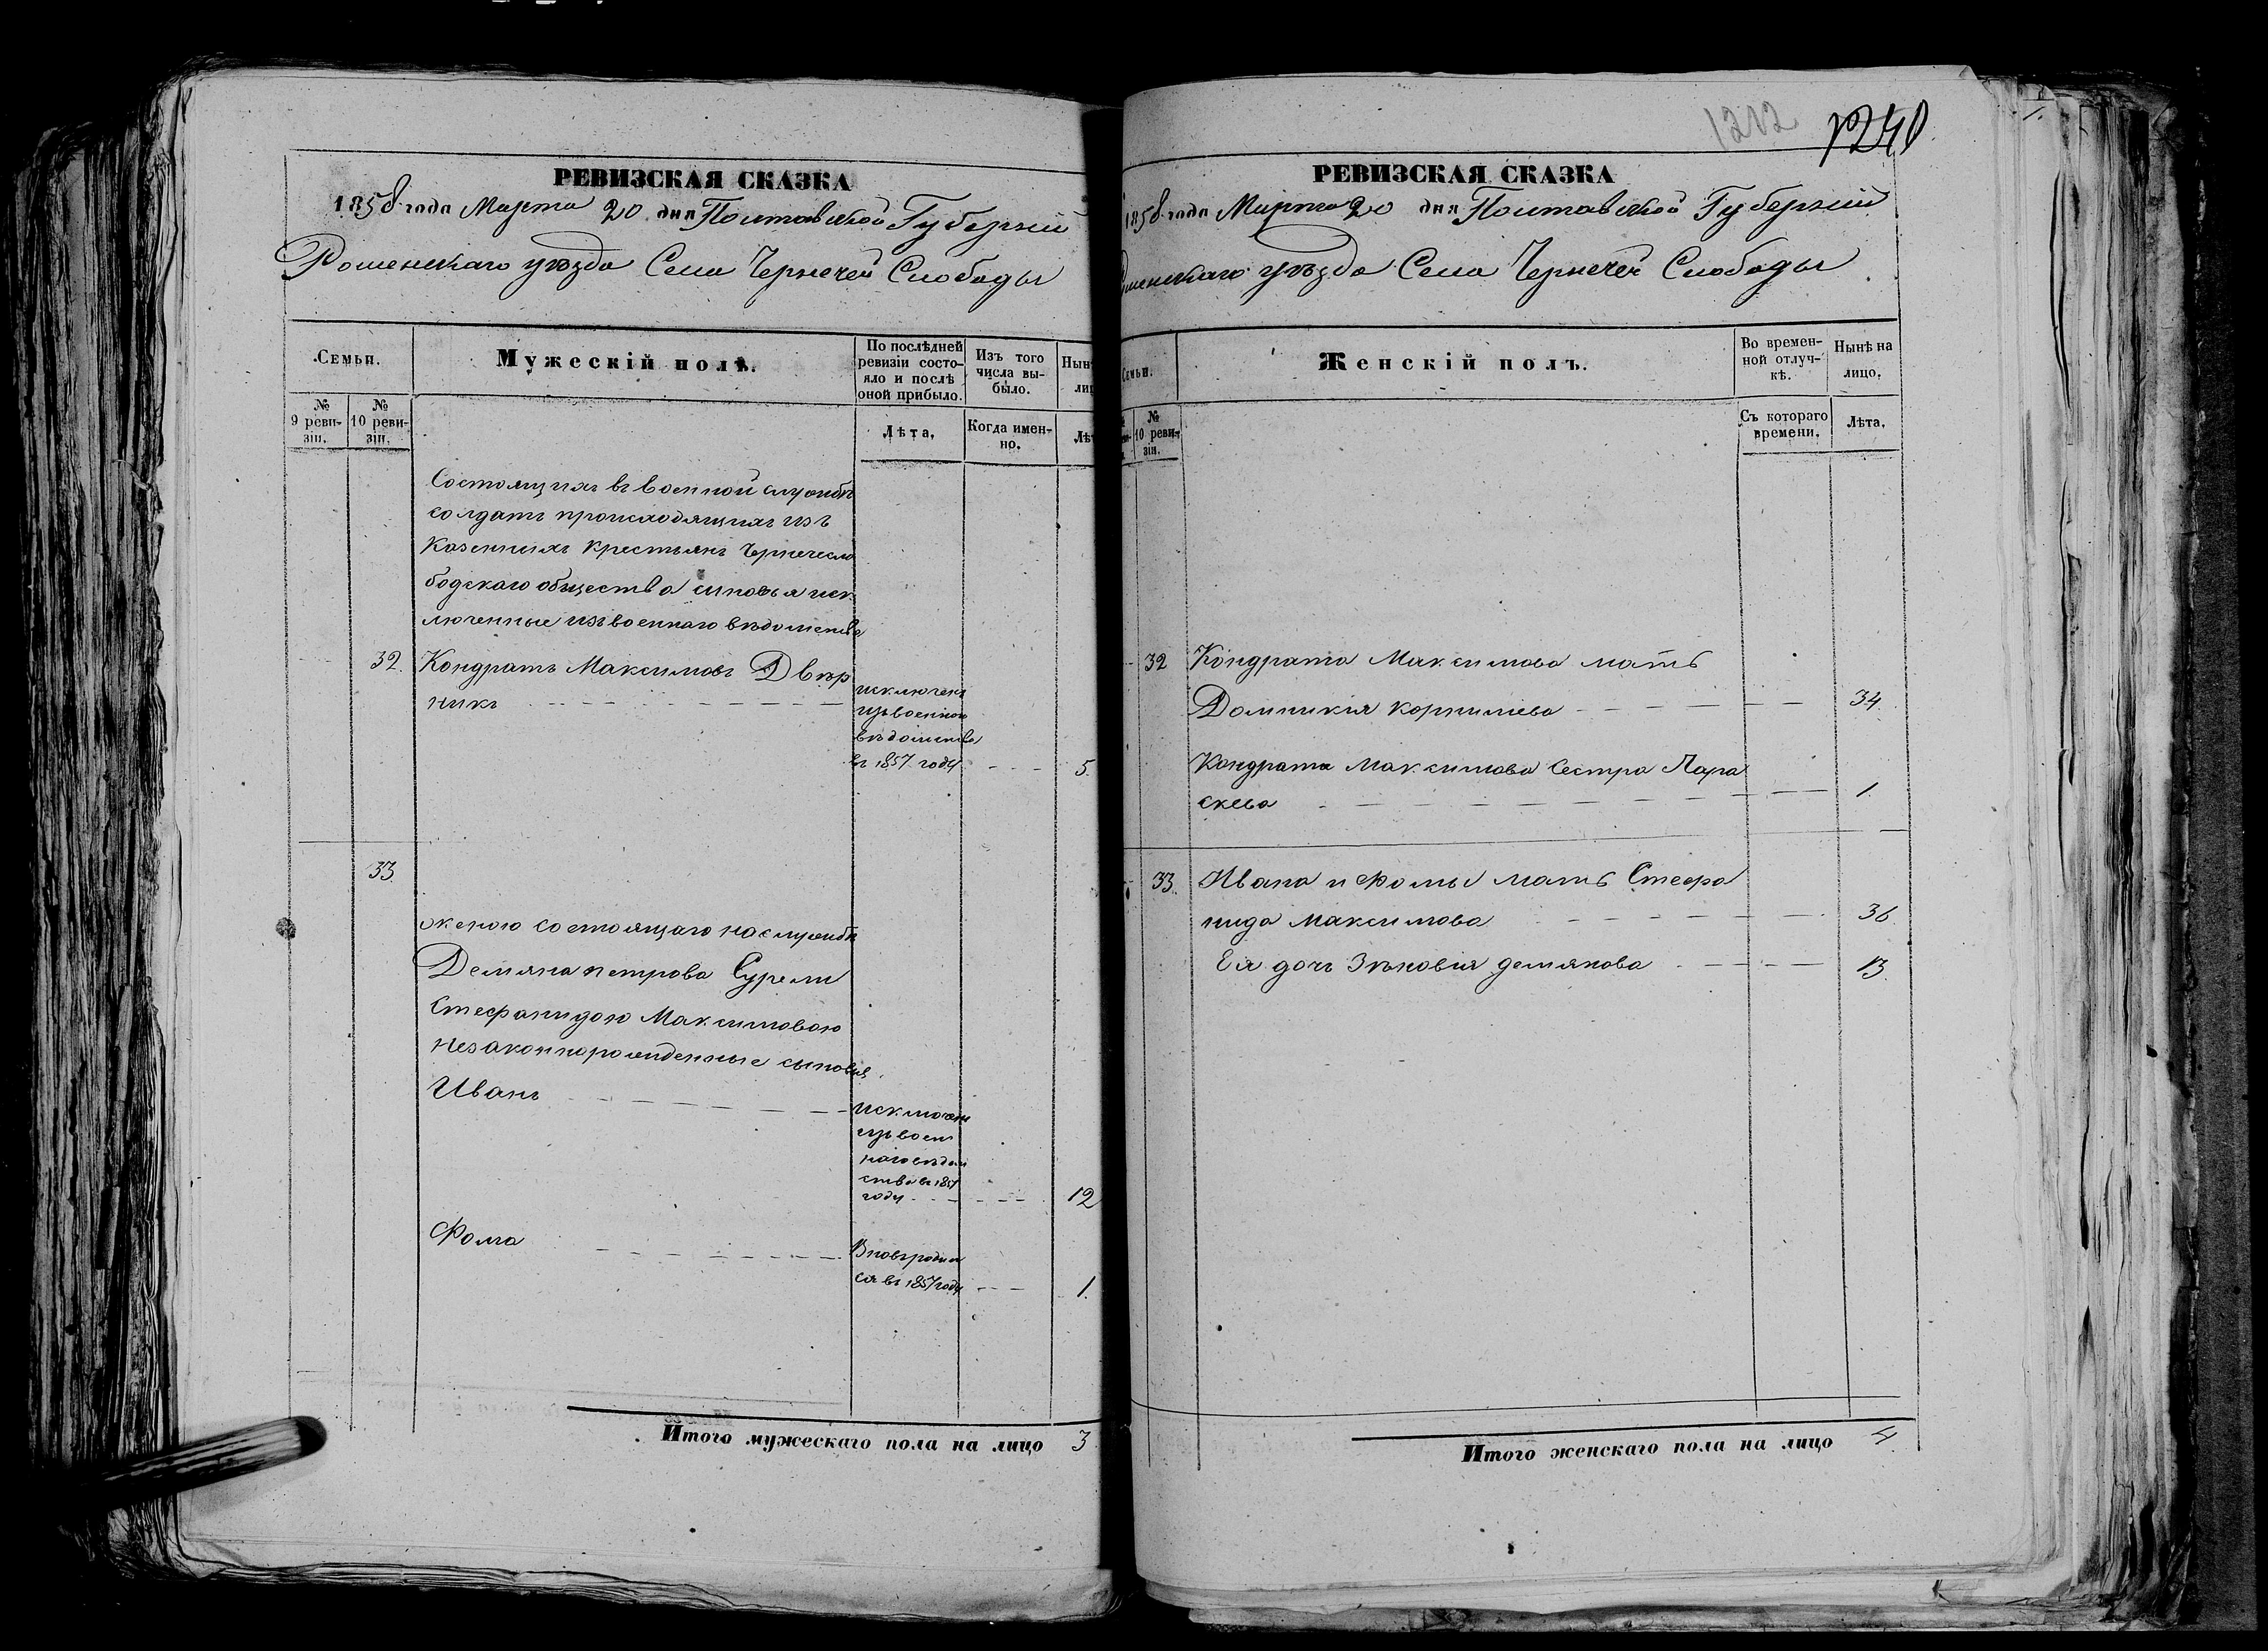 РЕВИЗСКАЯ СКАЗКА
1858 года Марта 20 дня Полтавской Губерніи
Роменскаго уѣзда Села Чернечей Слободы
Семьи.
Мужескій полъ.
По послѣдней
ревизіи состо-
яло и послѣ
оной прибыло.
Изъ того
числа вы-
было.
№
9 реви-
зіи.
№
10 реви-
зіи.
Лѣта,
Когда имен-
но.
Состоящихъ въ военной службѣ
солдатъ происходящихъ изъ
казенныхъ крестьянъ Чернечесло
бодскаго общества сыновья иск
люченные изъ военнаго вѣдомства
32. Кондратъ Максимовъ Двѣр
никъ
исключенъ
изъ военнаго
вѣдомства
въ 1857 году 5.
33.
женою состоящаго на службѣ
Демяна петрова Сурели
Стефанидою Максимовою
незаконнорожденные сыновья
Иванъ
исключенъ
изъ воен
наго вѣдом
ства въ 1857
году 12
Фома
Вновь родил
ся въ 1857 году 1.
Итого мужескаго пола на лицо 3
1212 1240
РЕВИЗСКАЯ СКАЗКА
1858 года Марта 20 дня Полтавской Губерніи
Роменскаго уѣзда Села Чернечей Слободы
Женскій полъ.
Во времен-
ной отлуч-
кѣ.
Нынѣ на
лицо.
№
10 реви-
зіи.
Съ котораго
времени.
Лѣта,
32 Кондрата Максимова мать
Домникія корнилева 34.
Кондрата Максимова Сестра Пара
скева 1.
33. Ивана и Фомы мать Стефа
нида Максимова 36.
Ея дочь Зѣновія демянова 13.
Итого женскаго пола на лицо 4.